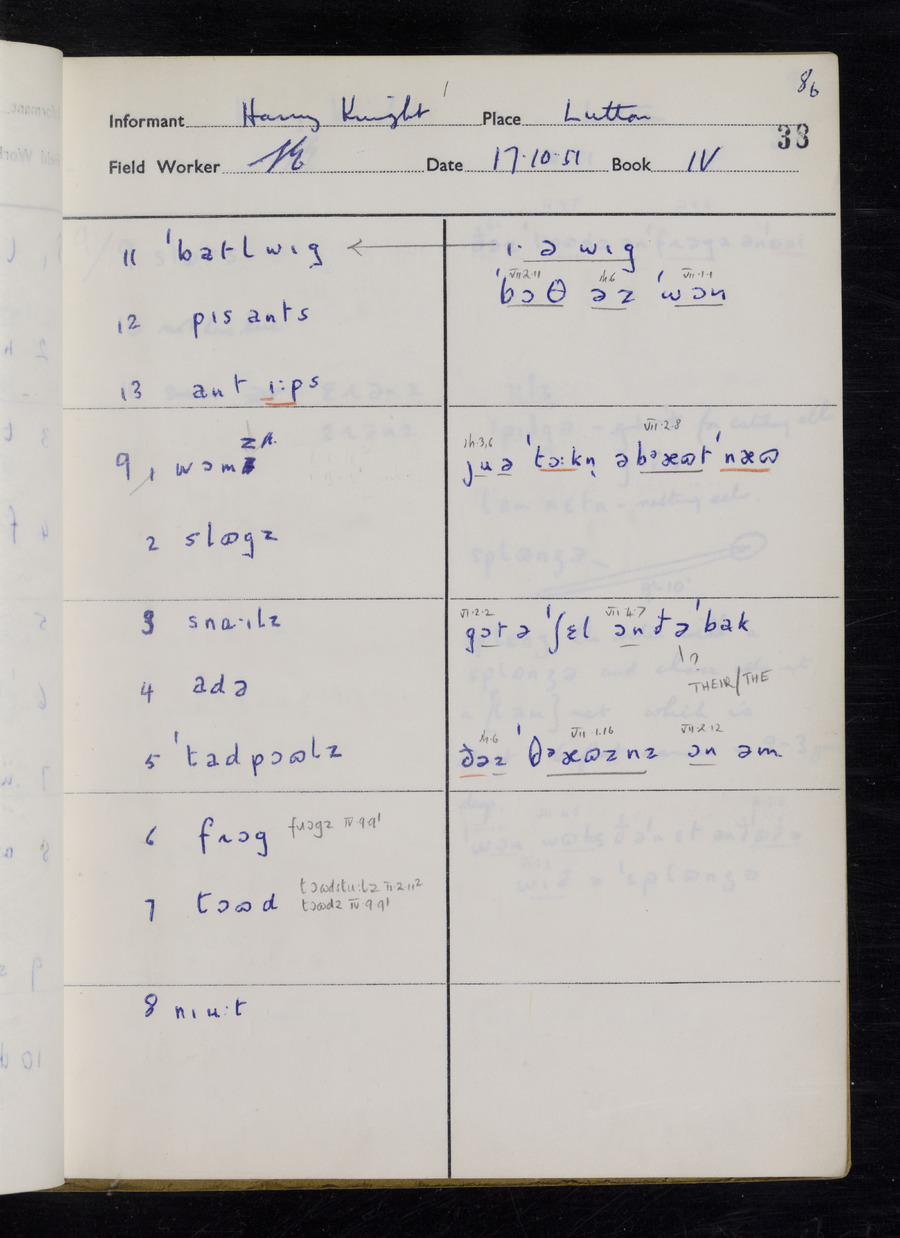 8b
Informant Harry Knight Place Lutton
33
Field Worker Date 17.10.51 Book IV
11 ˈbatlwɪg ← ɪ· ə wɪg
VII.2.11 ɪh.6 VII.1.1
ˈbɔθ əz ˈwɔn
12 pɪsants
13 ant ɪ:ps
9, 1 wəmz ɪh.
ɪh.3,6 VII.2.8
juə ˈtɔ:kn̩ əbᵊæɷt ˈnæɷ
2 slɷgz
3 sna·ɪlz
VI.2.2 VIII.4.7
gɔt ə ˈʃɛl ɔn ðə ˈbak
?
THEIR/THE
4 adə
5 ˈtadpɔɷlz
ɪh.6 VII.1.16 VII.2.12
ðəz ˈθᵊæɷznz ɔn əm
6 frɔg frɔgz IV.9.9¹
7 tɔɷd tɔɷdstu:lz II.2.11²
tɔɷdz IV.9.9¹
8 nɪu:t